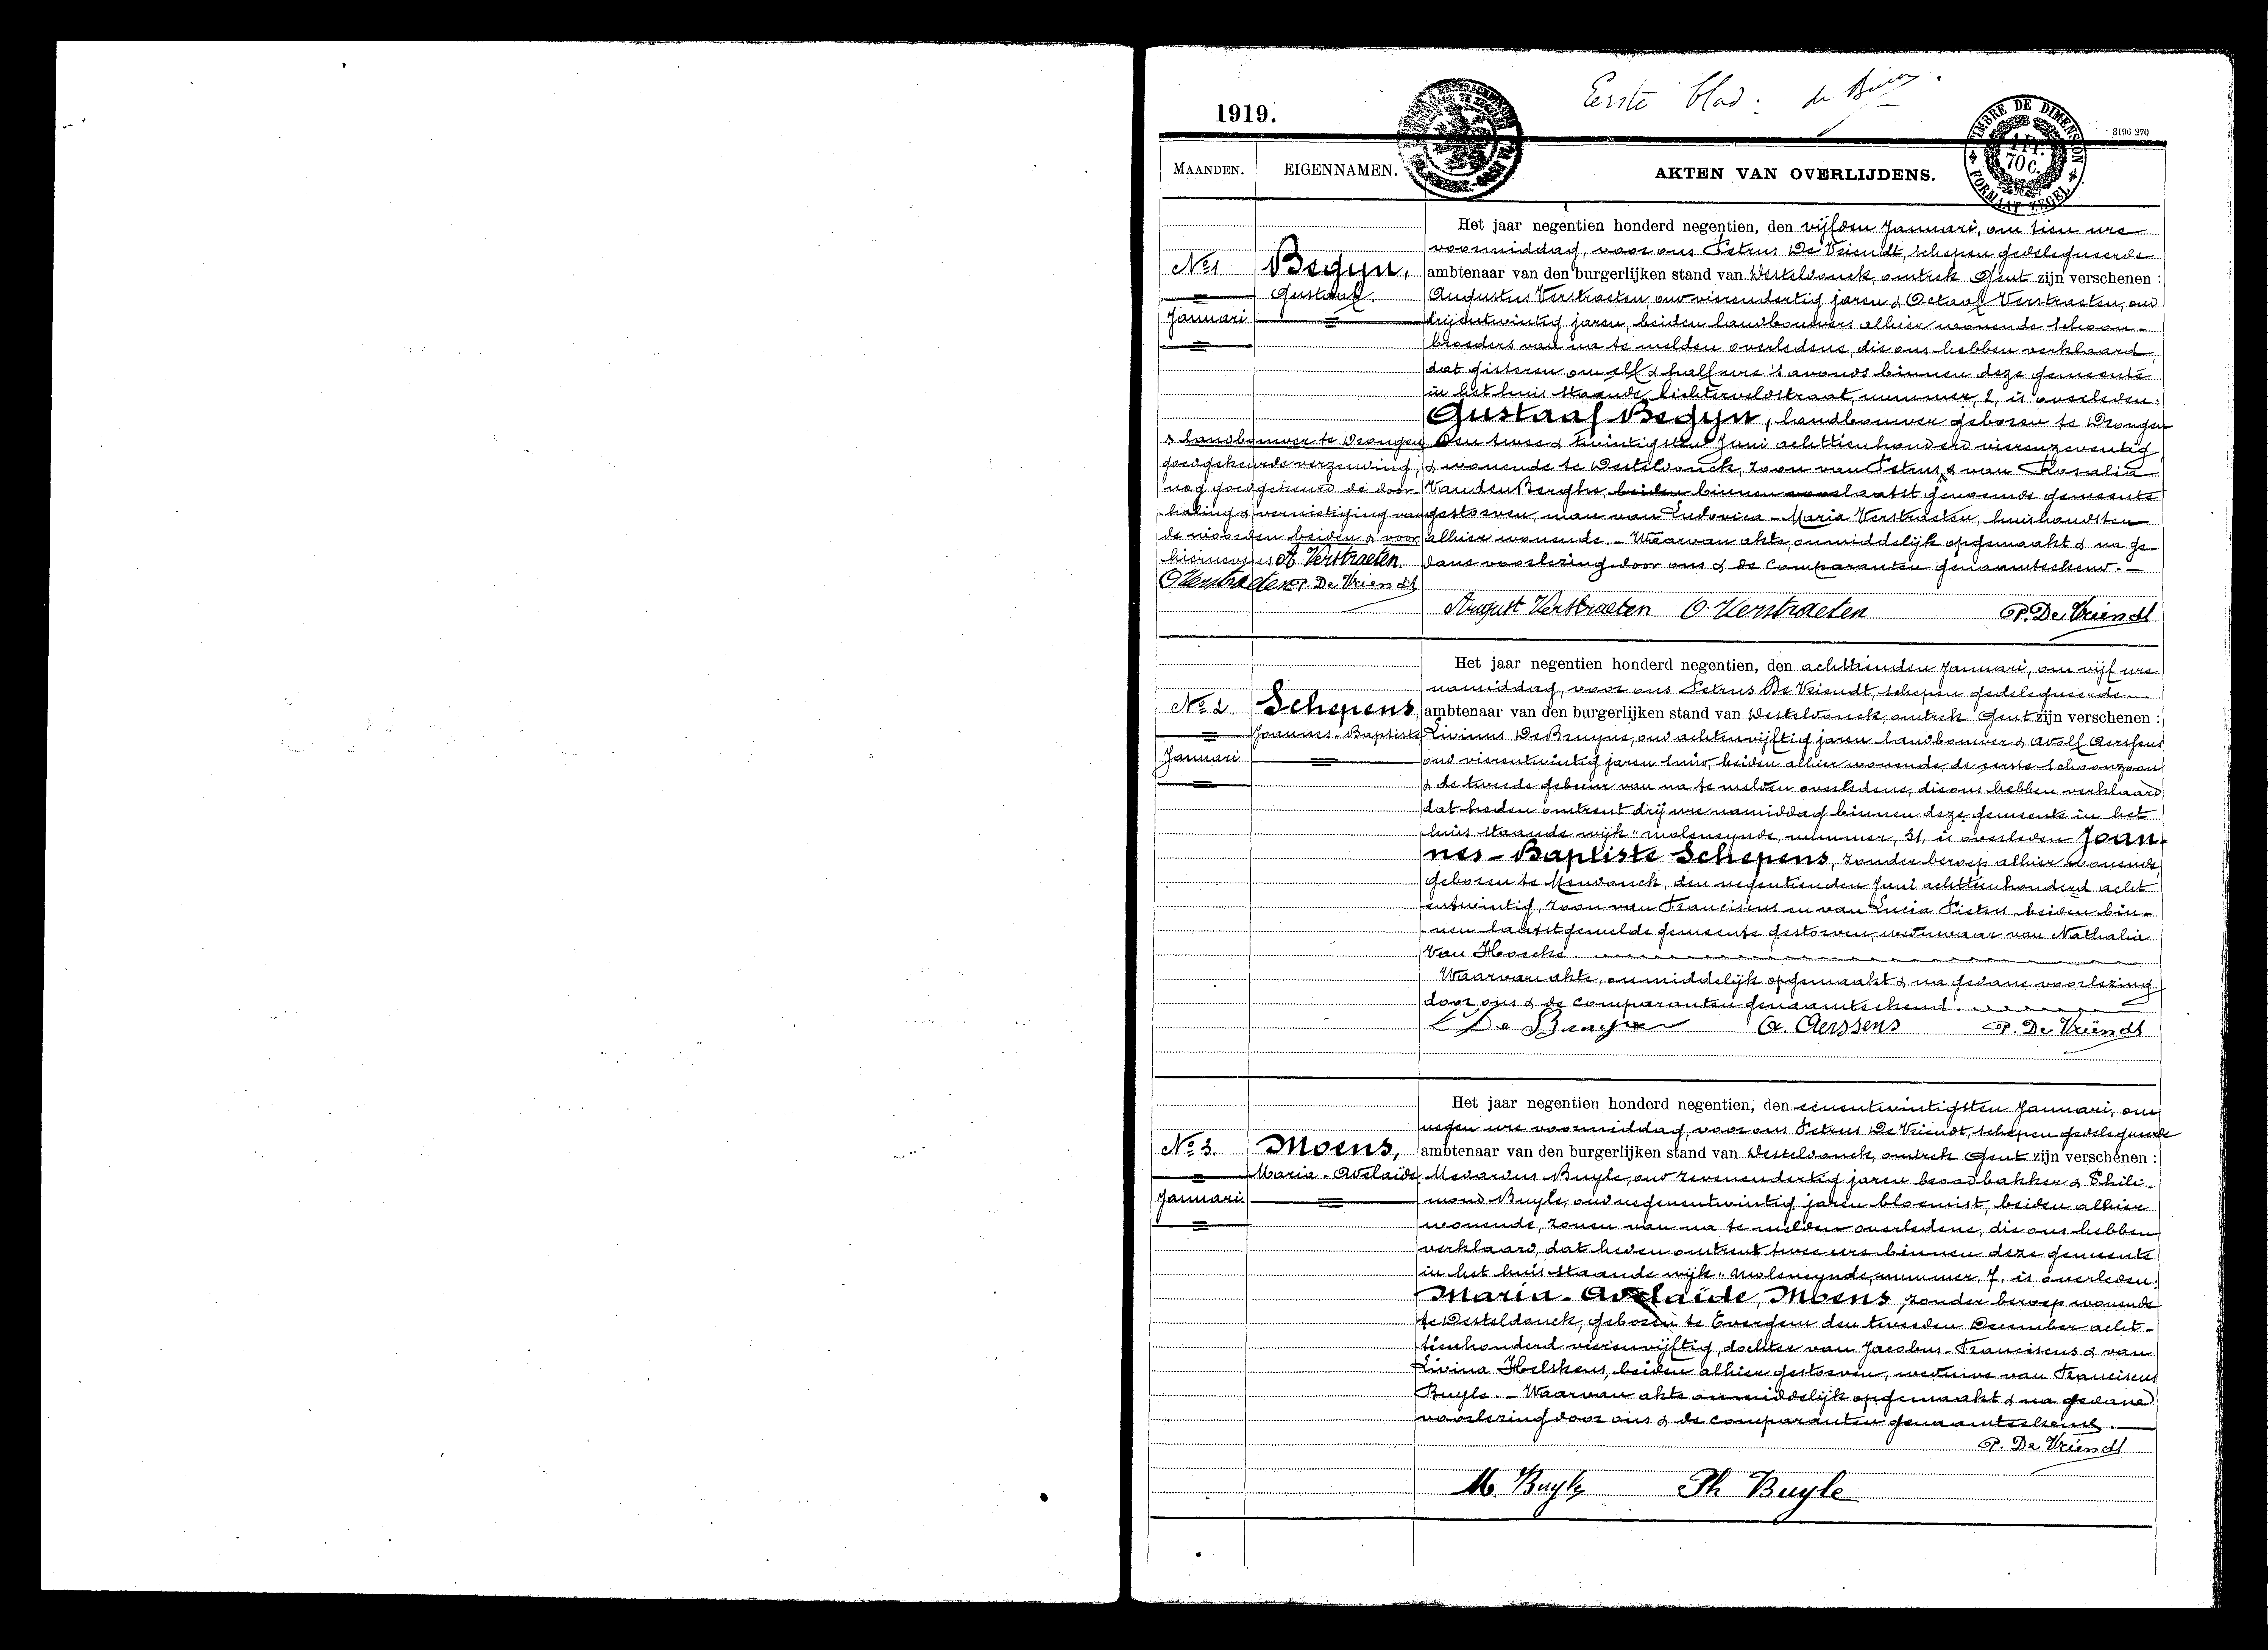 Eerste blad:
1919.
TIMBRE DE DIMENSION
1 Fr.
70 c.
FORMAAT ZEGEL
3196 270
MAANDEN.
EIGENNAMEN.
AKTEN VAN OVERLIJDENS.
No 1
Januari
Begijn,
Gustaaf.
Het jaar negentien honderd negentien, den vijfden Januari, om tien ure
voormiddag, voor ons Petrus De Vriendt, schepen gedelegueerde
ambtenaar van den burgerlijken stand van Desteldonck, omtrek Gent zijn verschenen :
Augustus Verstraeten, oud vierendertig jaren & Octaaf Verstraeten, oud
drijentwintig jaren, beiden landbouwers alhier wonende schoon-
broeders van na te melden overledene, die ons hebben verklaard,
dat gisteren om elf & half ure 's avonds binnen deze gemeente
in het huis staande Lichterveldstraat, nummer, 2, is overleden:
Gustaaf Begijn, landbouwer geboren te Drongen
den twee & twintigsten Juni achttienhonderd vierenzeventig
& wonende te Desteldonck, zoon van Petrus & van Rosalia
Vanden Berghe, beiden binnen voorlaatst genoemde gemeente
gestorven, man van Ludovica-Maria Verstraeten, huishoudster
alhier wonende. - Waarvan akte, onmiddelijk opgemaakt & na ge-
dane voorlezing door ons & de comparanten genaamteekend. -
& landbouwer te Drongen
goedgekeurde verzending,
nog goedgekeurd de door-
haling & vernietiging van
de woorden beiden & voor
hiernevens A Verstraeten
O Verstraeten P. De Vriendt
August Verstraeten O. Verstraeten P. De Vriendt
No 2
Januari
Schepens,
Joannes-Baptiste
Het jaar negentien honderd negentien, den achttienden Januari, om vijf ure
namiddag, voor ons Petrus De Vriendt, schepen gedelegueerde
ambtenaar van den burgerlijken stand van Desteldonck, omtrek Gent zijn verschenen :
Livinus De Bruyne, oud achtenvijftig jaren landbouwer & Adolf Aerssens
oud vierentwintig jaren smid, beiden alhier wonende, de eerste schoonzoon
& de tweede gebuur van na te melden overledene, die ons hebben verklaard
dat heden omtrent drij ure namiddag binnen deze gemeente in het
huis staande wijk "moleneynde, nummer, 31, is overleden Joan-
nes-Baptiste Schepens, zonder beroep alhier wonende,
geboren te Mendonck, den negentienden Juni achttienhonderd acht
entwintig, zoon van Franciscus en van Lucia Pieters, beiden bin-
nen laatstgemelde gemeente gestorven, weduwaar van Nathalia
Van Hoecke
Waarvan akte, onmiddelijk opgemaakt & na gedane voorlezing
door ons & de comparanten genaamteekend.
L De Bruyne A. Aerssens P. De Vriendt
No 3.
Januari
Moens,
Maria-Adelaïde
Het jaar negentien honderd negentien, den eenentwintigsten Januari, om
negen ure voormiddag, voor ons Petrus De Vriendt, schepen gedelegueerde
ambtenaar van den burgerlijken stand van Desteldonck, omtrek Gent zijn verschenen :
Medardus Buyle, oud zevenendertig jaren broodbakker & Phile-
mond Buyle, oud negenentwintig jaren bloemist, beiden alhier
wonende, zonen van na te melden overledene, die ons hebben
verklaard, dat heden omtrent twee ure binnen deze gemeente
in het huis staande wijk "Moleneynde, nummer, 7, is overleden:
Maria-Adelaïde Moens, zonder beroep wonende
te Desteldonck, geboren te Evergem den tweeden December acht-
tienhonderd vierenvijftig, dochter van Jacobus-Franciscus & van
Livina Helskens, beiden alhier gestorven, weduwe van Franciscus
Buyle. - Waarvan akte onmiddelijk opgemaakt & na gedane
voorlezing door ons & de comparanten genaamteekend.
P. De Vriendt
M. Buyle Ph Buyle